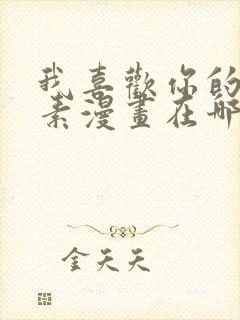 我喜歡你的
素漫畫在哪
金天天